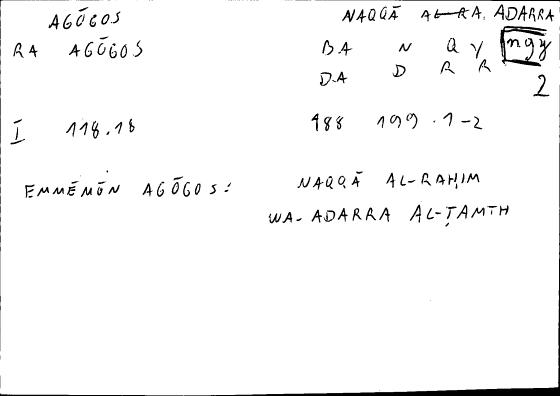 AGŌGOS NAQQĀ AL-RA, ADARRA
RA AGŌGOS BA N Q Y ngy
DA D R R 2
I 118.18 488 199.1-2
EMMĒMŌN AGŌGOS: NAQQĀ AL-RAḤIM
WA-ADARRA AL-ṬAMTH